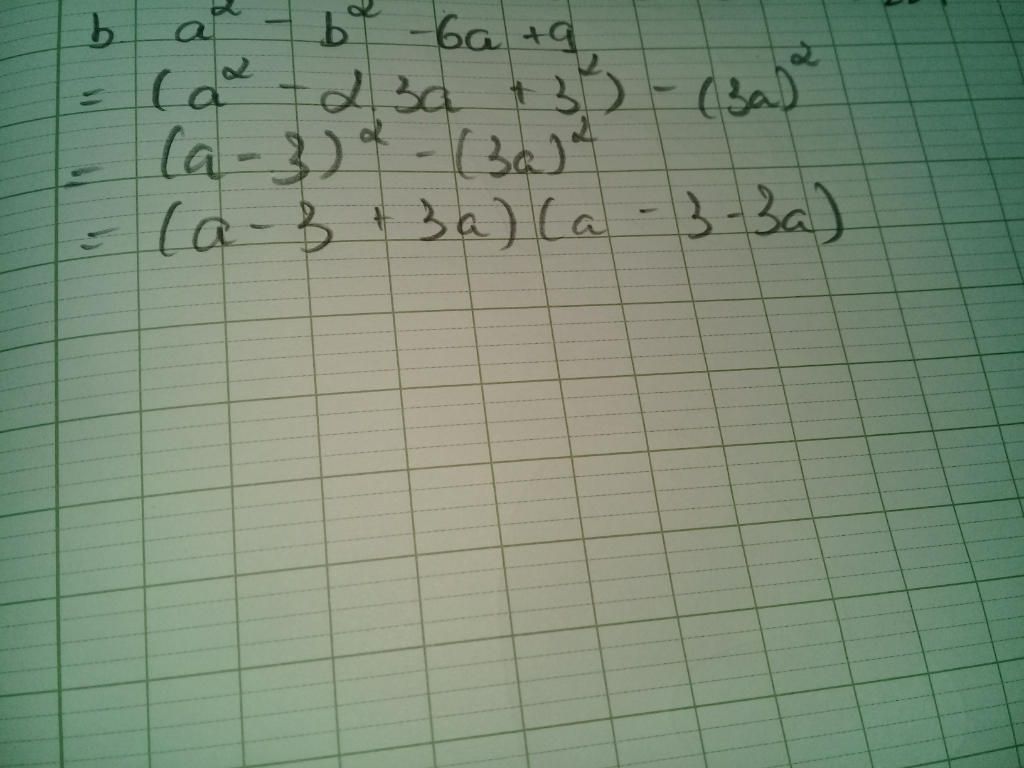 b a² - b² - 6a + 9
= (a² - 2.3a + 3²) - (3a)²
= (a - 3)² - (3a)²
= (a - 3 + 3a)(a - 3 - 3a)